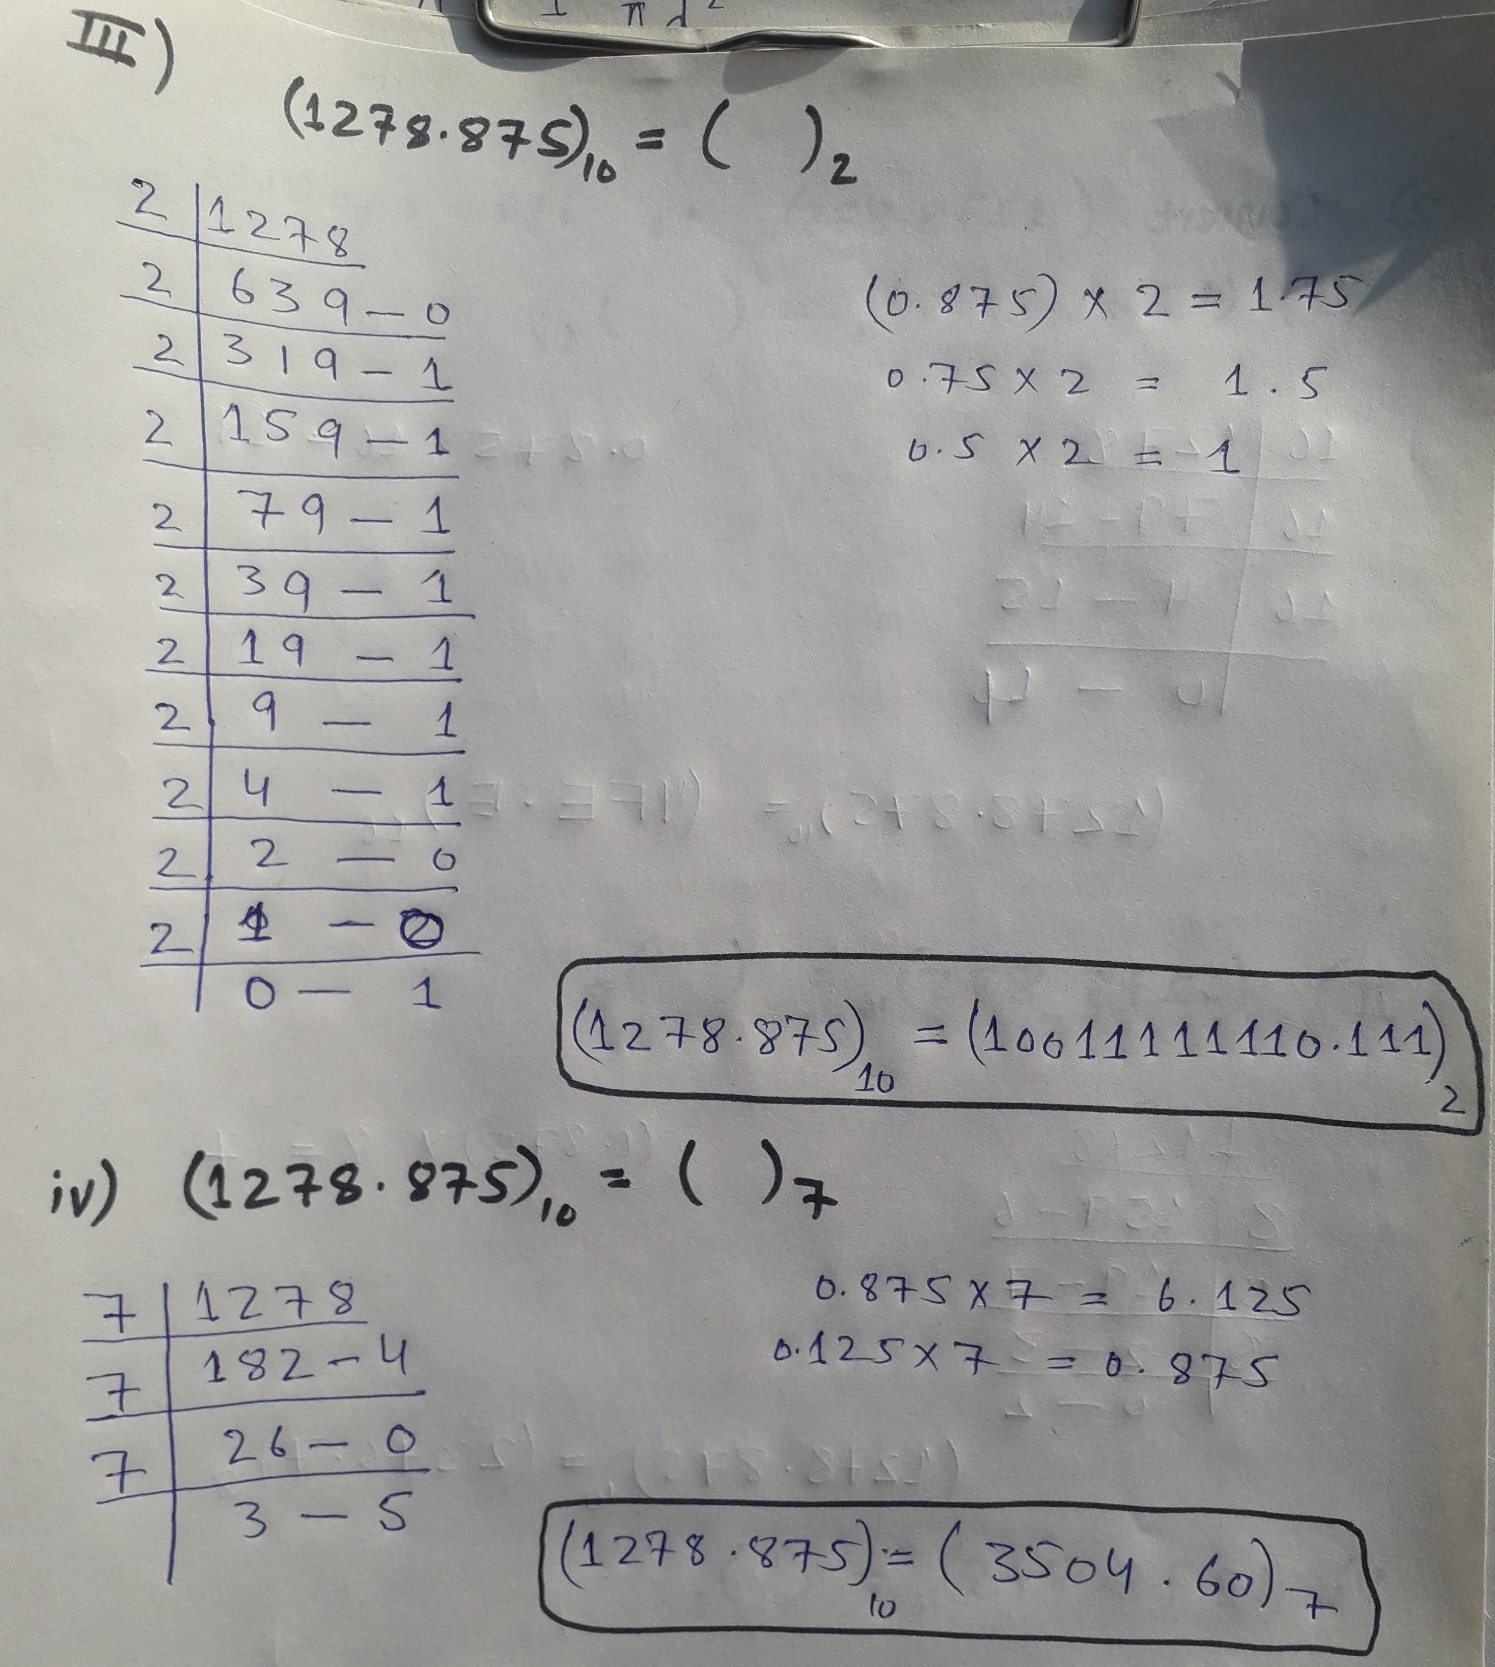 III)
(1278.875)₁₀ = ( )₂
2 | 1278
2 | 639 - 0
2 | 319 - 1
2 | 159 - 1
2 | 79 - 1
2 | 39 - 1
2 | 19 - 1
2 | 9 - 1
2 | 4 - 1
2 | 2 - 0
2 | 1 - 0
0 - 1
(0.875) × 2 = 1.75
0.75 × 2 = 1.5
0.5 × 2 = 1
(1278.875)₁₀ = (10011111110.111)₂
iv) (1278.875)₁₀ = ( )₇
7 | 1278
7 | 182 - 4
7 | 26 - 0
3 - 5
0.875 × 7 = 6.125
0.125 × 7 = 0.875
(1278.875)₁₀ = (3504.60)₇